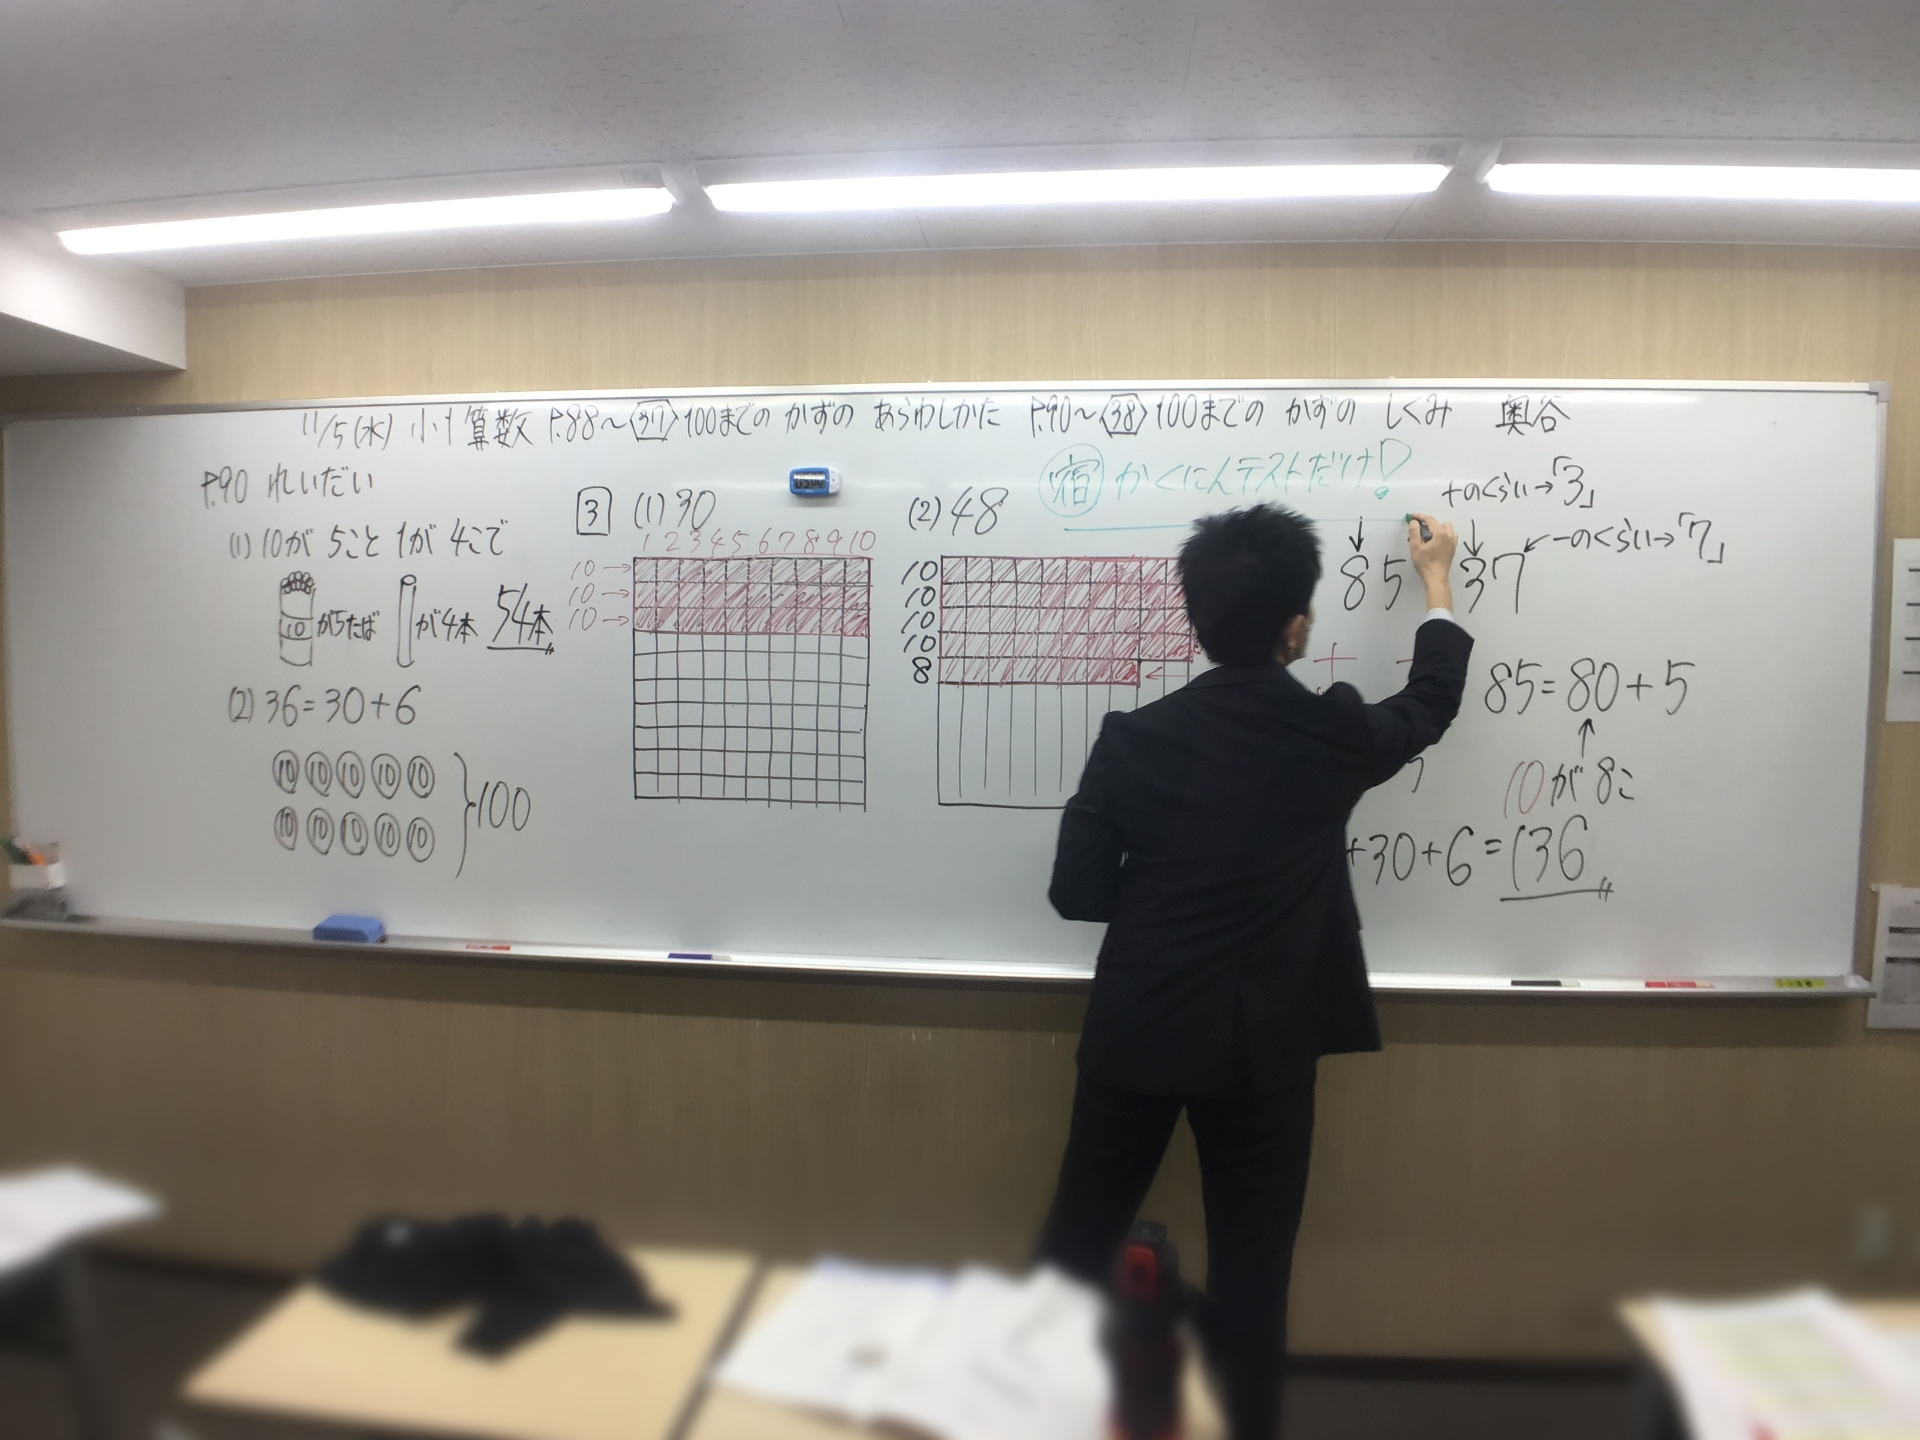 11/5(水) 小1算数 P.88～37 100までの かずの あらわしかた P.90～38 100までの かずの しくみ 奥谷
P.90 れいだい
(1) 10が 5こと 1が 4こで
10 が5たば が4本 54本
(2) 36=30+6
10 10 10 10 10
10 10 10 10 10
100
3 (1) 30
1 2 3 4 5 6 7 8 9 10
10→
10→
10→
(2) 48
10
10
10
10
8
宿 かくにんテストだけ!
十のくらい→「3」
一のくらい→「7」
85 37
85=80+5
10が8こ
+30+6=136